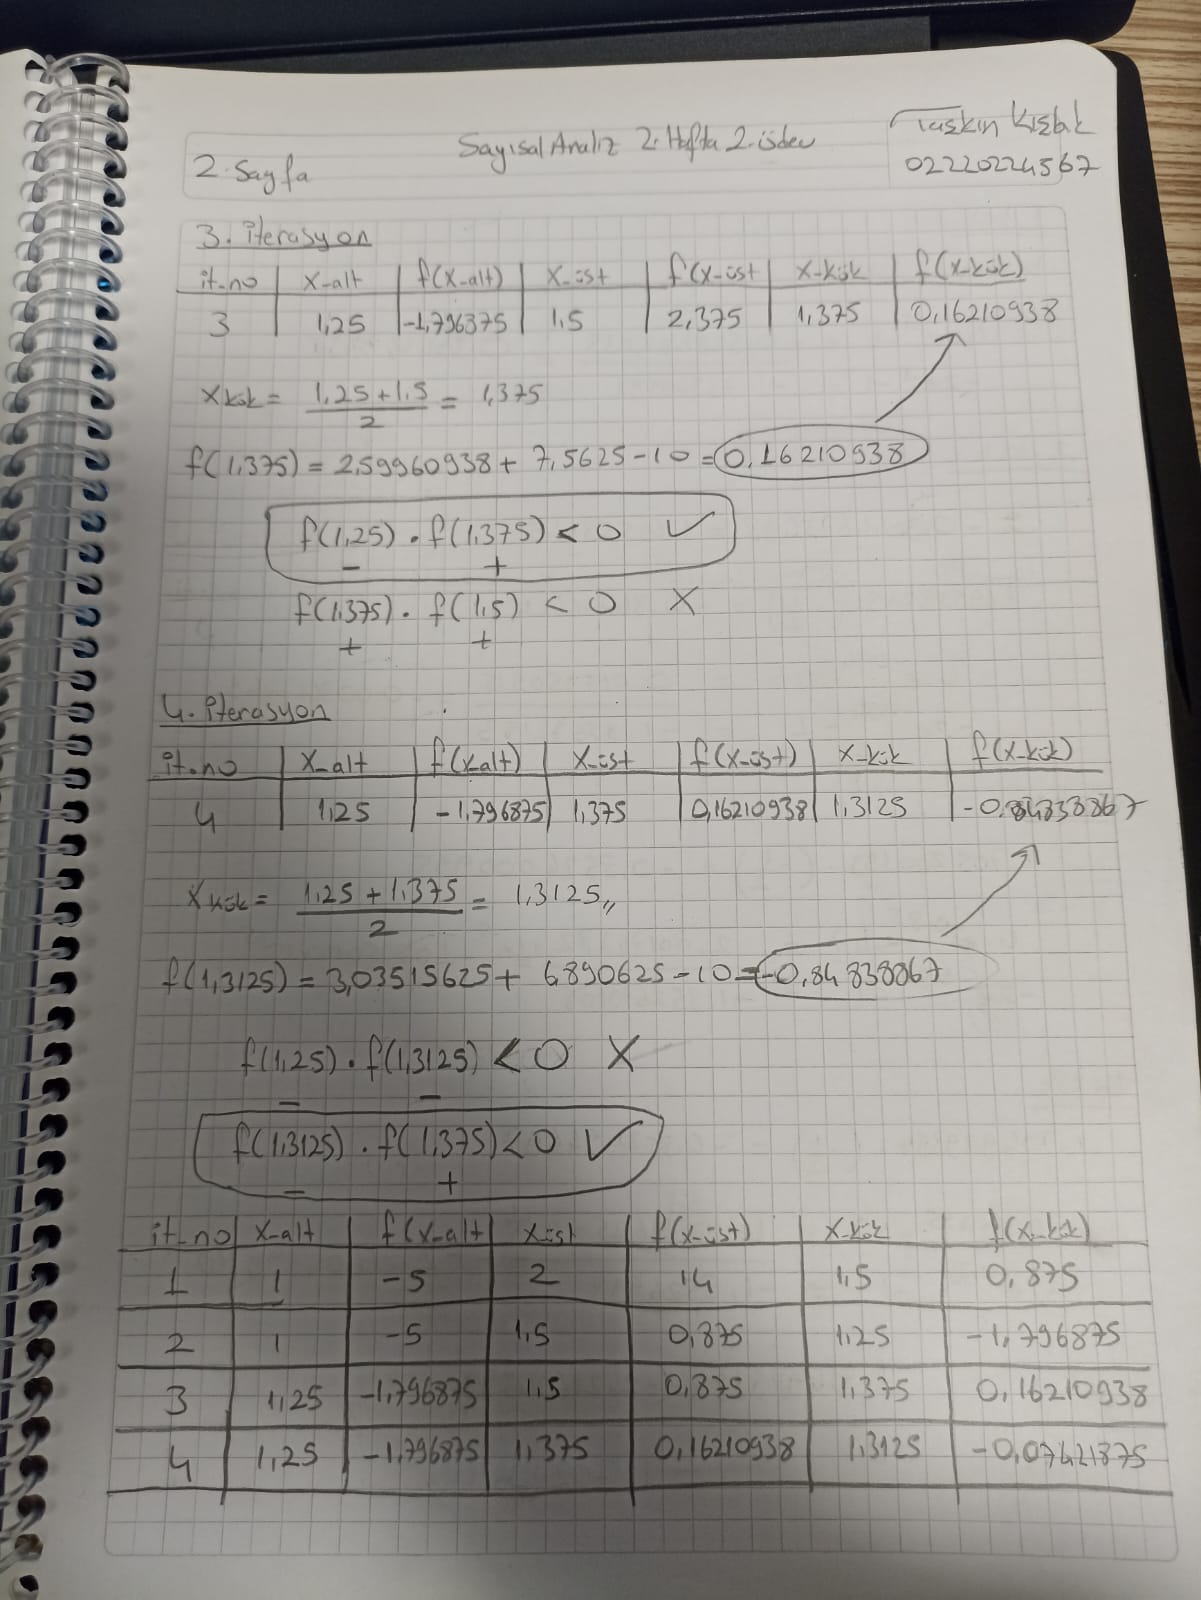 Taşkın Kışlak
Sayısal Analiz 2. Hafta 2. ödev
2. Sayfa
02220224567
3. iterasyon
it-no x-alt f(x-alt) x-üst f(x-üst x-kök f(x-kök)
3 1,25 -1,796375 1,5 2,375 1,375 0,16210938
xkök = 1,25+1,5 / 2 = 1,375
f(1,375) = 2,59960938 + 7,5625 - 10 = 0,16210938
f(1,25) . f(1,375) < 0 ✓
- +
f(1,375) . f(1,5) < 0 X
+ +
4. iterasyon
it.no x-alt f(x-alt) x-üst f(x-üst) x-kök f(x-kök)
4 1,25 -1,796875 1,375 0,16210938 1,3125 -0,84838867
xkök = 1,25 + 1,375 / 2 = 1,3125,,
f(1,3125) = 3,03515625 + 6,890625 - 10 = -0,84838867
f(1,25) . f(1,3125) < 0 X
- -
f(1,3125) . f(1,375) < 0 ✓
- +
it-no x-alt f(x-alt x-üst f(x-üst) x-kök f(x-kök)
1 1 -5 2 14 1,5 0,875
2 1 -5 1,5 0,875 1,25 -1,796875
3 1,25 -1,796875 1,5 0,875 1,375 0,16210938
4 1,25 -1,796875 1,375 0,16210938 1,3125 -0,07421875